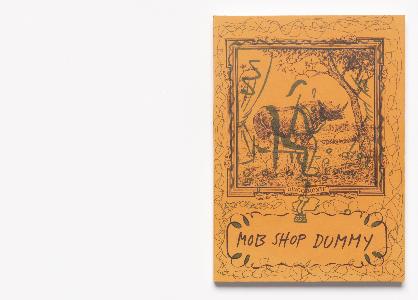 MOB SHOP DUMMY